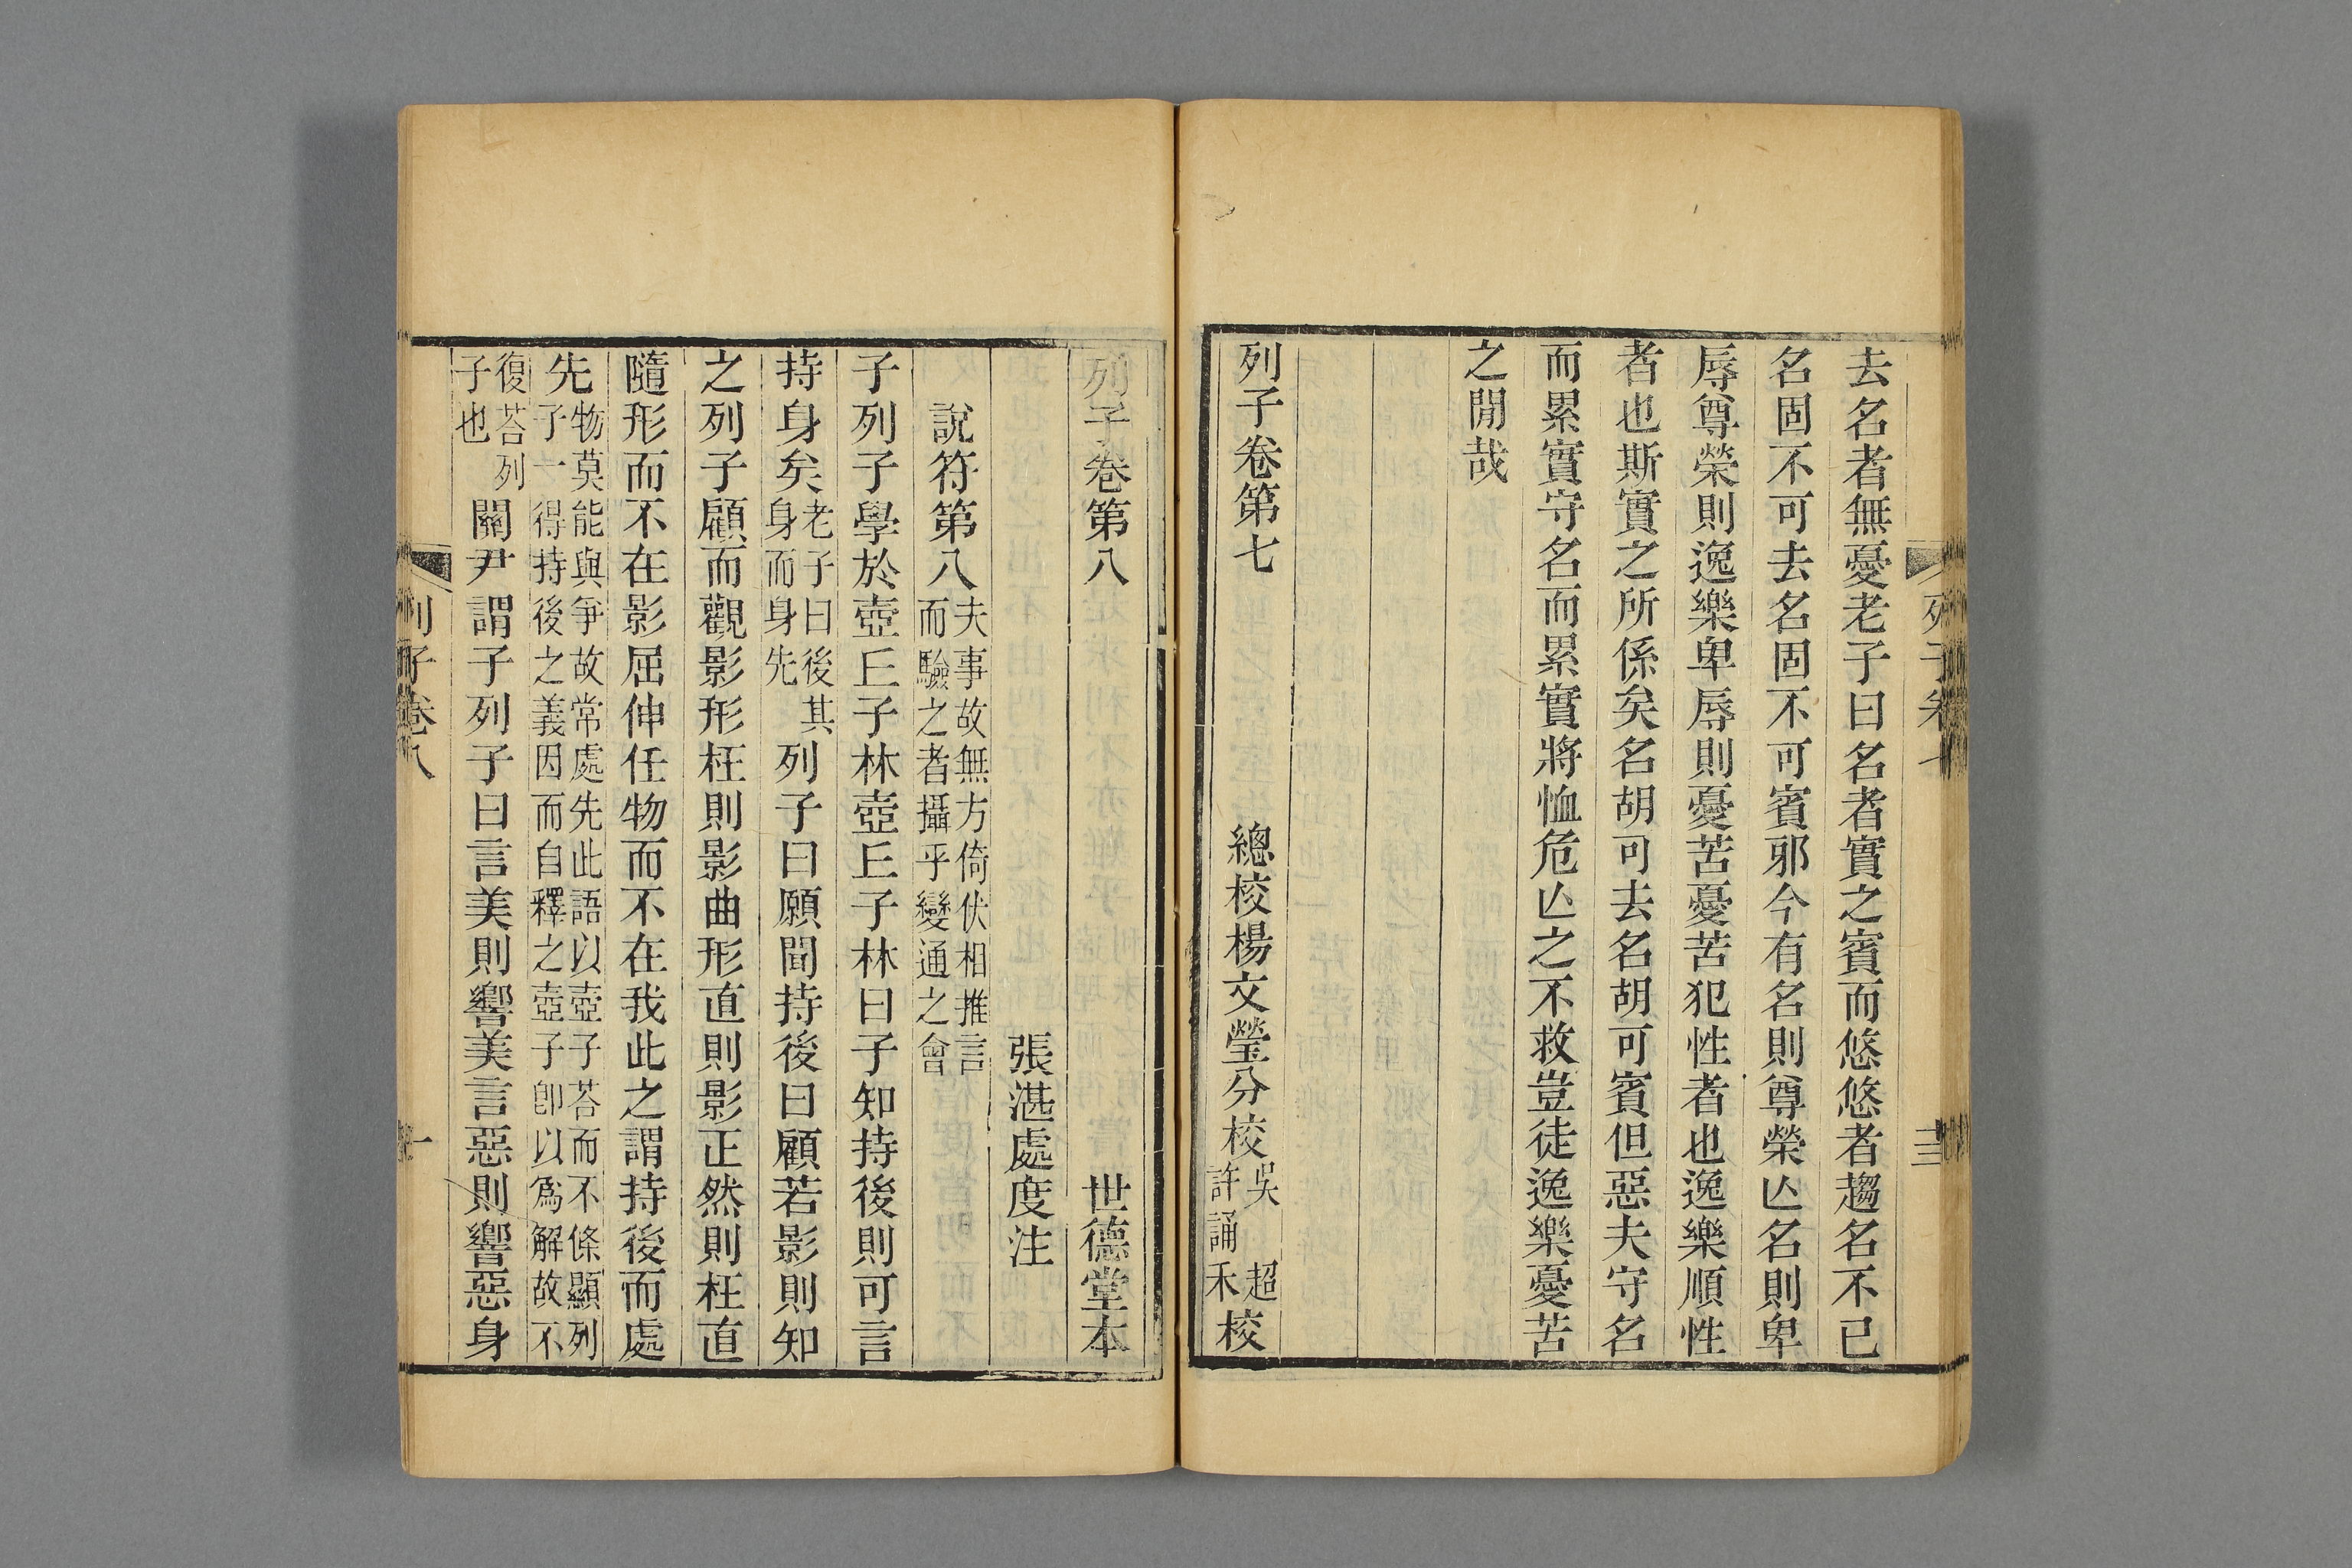 列子卷七
十三
去名者無憂老子曰名者實之賓而悠悠者趨名不已
名固不可去名固不可賓邪今有名則尊榮亾名則卑
辱尊榮則逸樂卑辱則憂苦憂苦犯性者也逸樂順性
者也斯實之所係矣名胡可去名胡可賓但惡夫守名
而累實守名而累實將恤危亾之不救豈徒逸樂憂苦
之閒哉
列子卷第七
總校楊文瑩分校
吳超
許誦禾
校
列子卷第八
世德堂本
張湛處度注
說符第八
夫事故無方倚伏相推言
而驗之者攝乎變通之會
子列子學於壺丘子林壺丘子林曰子知持後則可言
持身矣
老子曰後其
身而身先
列子曰願聞持後曰顧若影則知
之列子顧而觀影形枉則影曲形直則影正然則枉直
隨形而不在影屈伸任物而不在我此之謂持後而處
先
物莫能與爭故常處先此語以壺子荅而不條顯列
子一得持後之義因而自釋之壺子卽以爲解故不
復荅列
子也
關尹謂子列子曰言美則響美言惡則響惡身
列子卷八
一